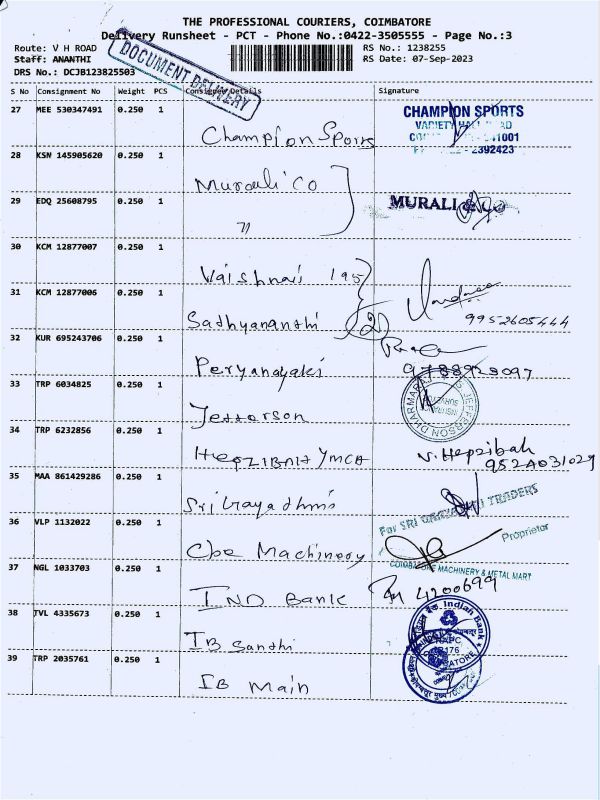 THE PROFESSIONAL COURIERS, COIMBATORE
Delivery Runsheet - PCT - Phone No.:0422-3505555 - Page No.:3
Route: V H ROAD
RS No.: 1238255
Staff: ANANTHI
RS Date: 07-Sep-2023
DRS No.: DCJB123825503
DOCUMENT DELIVERY
S No Consignment No Weight PCS Consignee Details Signature
27 MEE 530347491 0.250 1 Champion Sports
CHAMPION SPORTS
VARIETY HALL ROAD
2392423
28 KSN 145905620 0.250 1 Murali Co
29 EDQ 25608795 0.250 1 "
MURALI & Co
30 KCM 12877007 0.250 1 Vaishnavi 195
31 KCM 12877006 0.250 1 Sathyananthi 2
9952605444
32 KUR 695243706 0.250 1 Peryanayaki
9788928097
33 TRP 6034825 0.250 1 Jefferson
JEFFERSON DHARMARAJ
34 TRP 6232856 0.250 1 HEPZIBAH YMCA
V. Hepzibah
952A031029
35 MAA 861429286 0.250 1
For SRI TRADERS
Proprietor
36 VLP 1132022 0.250 1 Cbe Machinery
COIMBATORE MACHINERY & METAL MART
37 NGL 1033703 0.250 1 IND Bank
4200699
38 TVL 4335673 0.250 1 IB Santhi
Indian Bank
39 TRP 2035761 0.250 1 IB Main